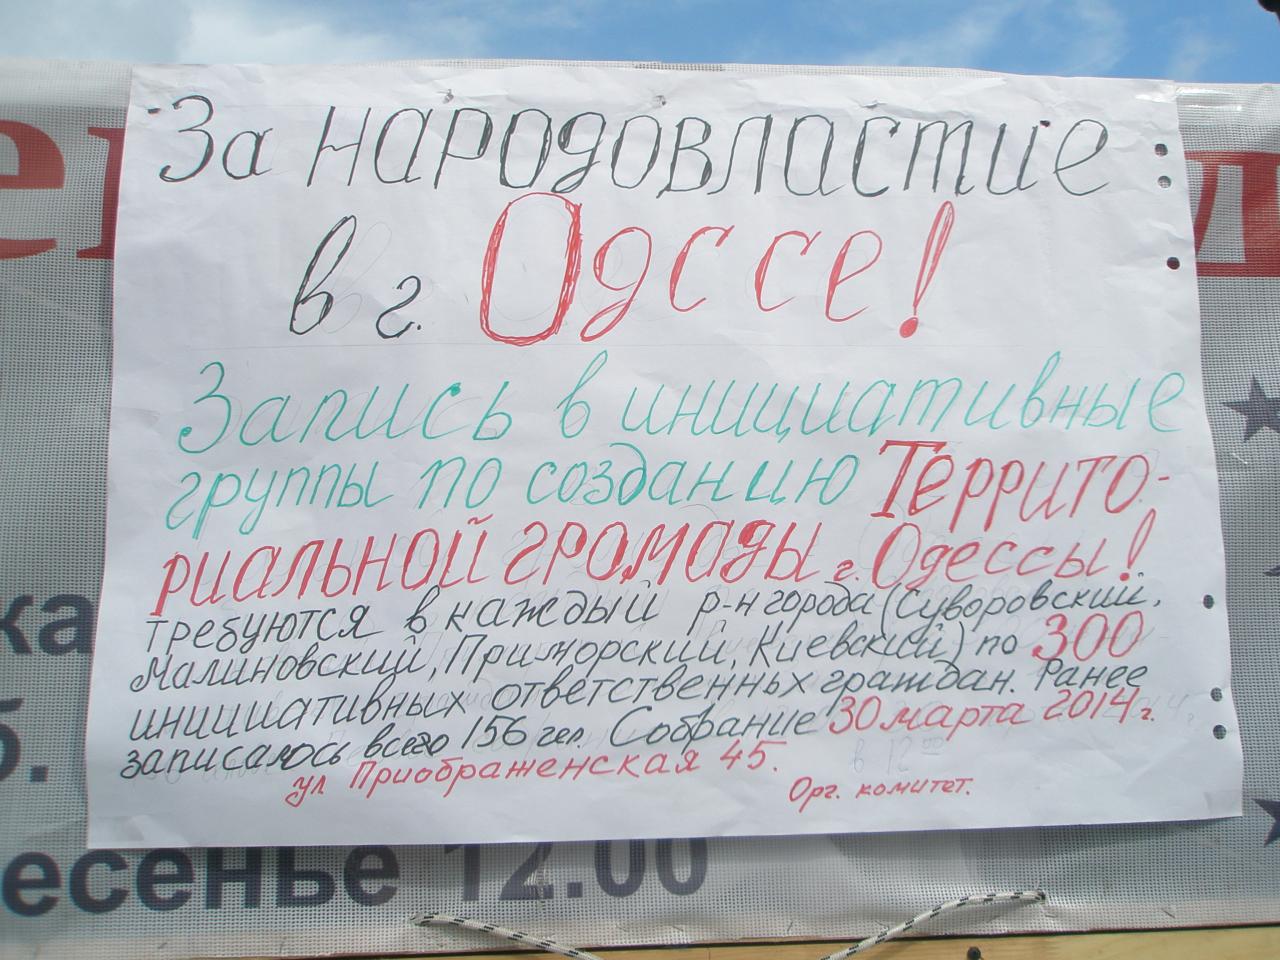 За народовластие
в г. Одссе!
Запись в инициативные
группы по созданию Террито-
риальной громады г. Одессы!
требуются в каждый р-н города (Суворовский,
Малиновский, Приморский, Киевский) по 300
инициативных ответственных граждан. Ранее
записалось всего 156 чел. Собрание 30 марта 2014 г.
в 12 00
ул Приображенская 45.
Орг. комитет.
ка
б.
есенье 12.00